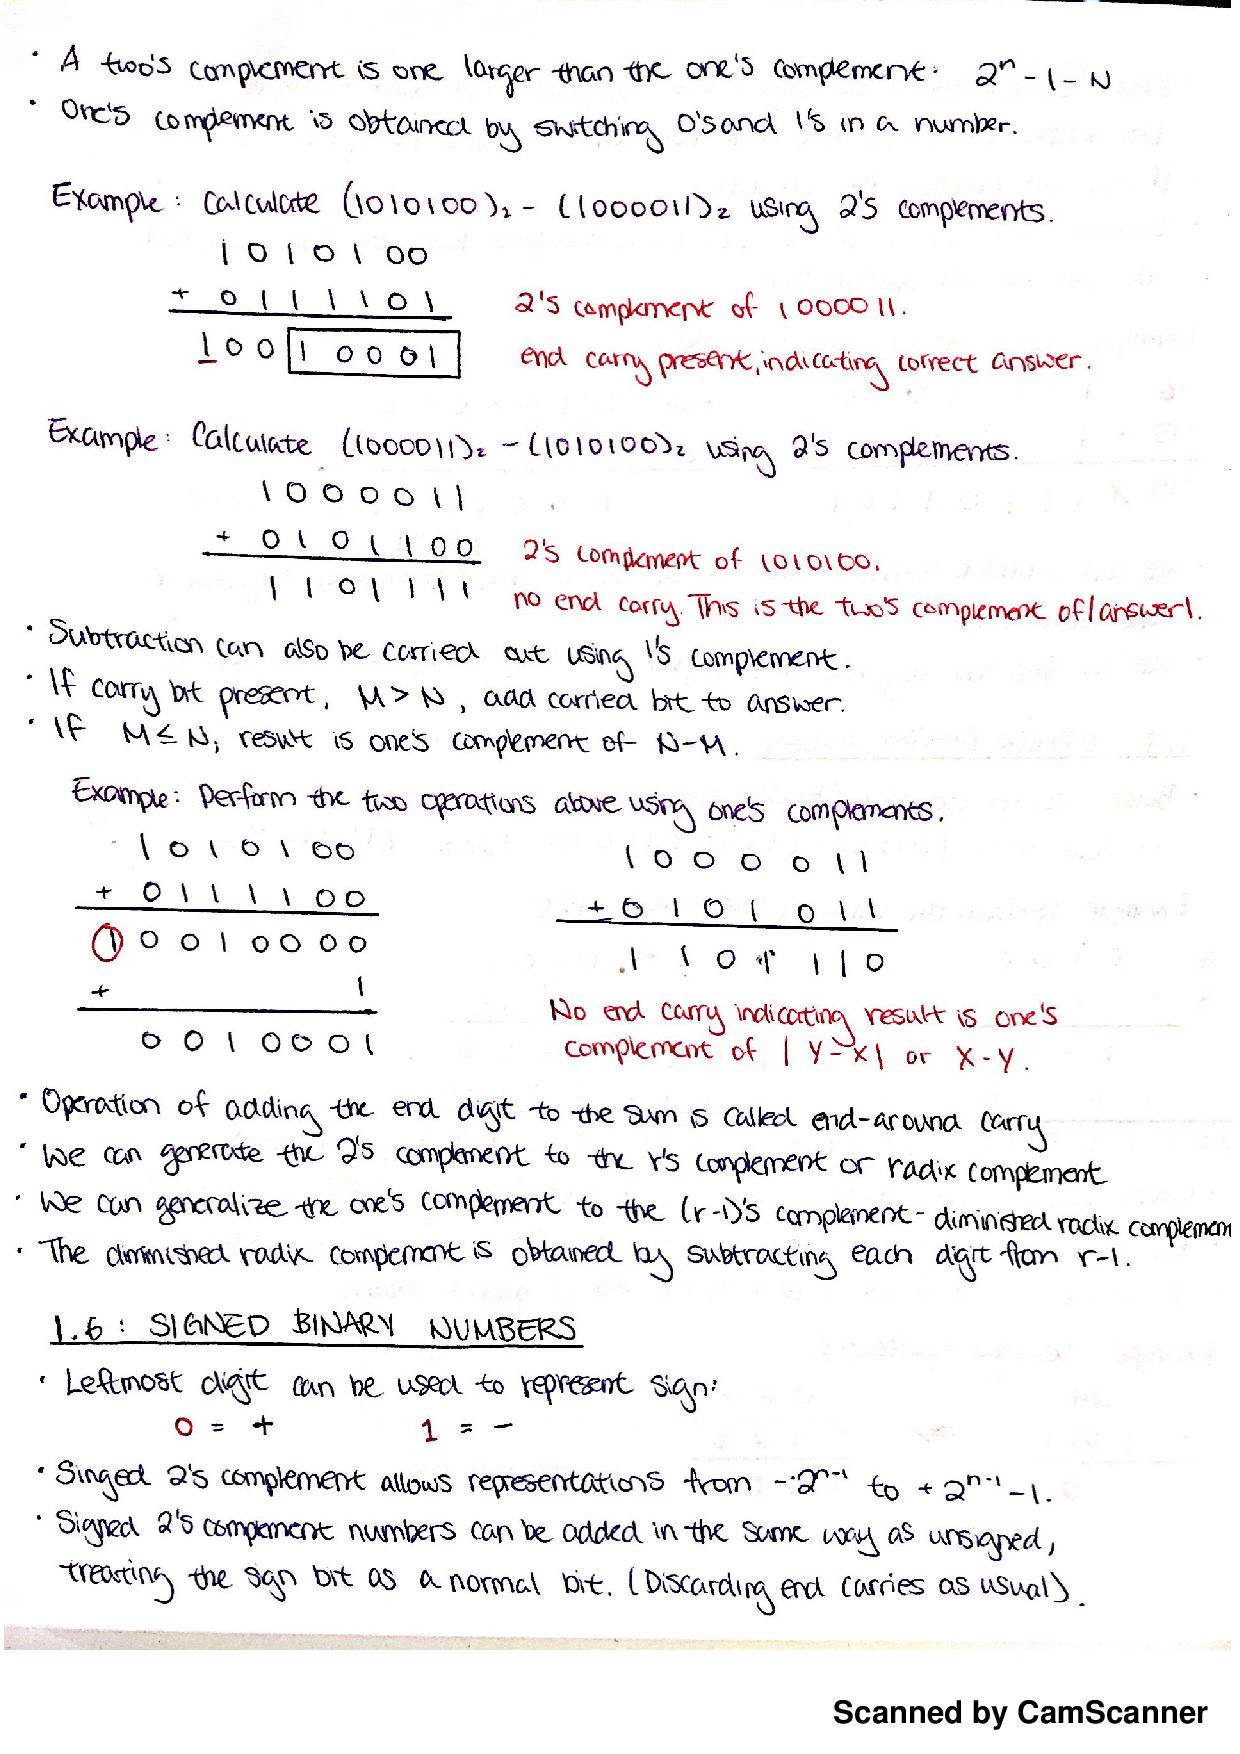 · A two's complement is one larger than the one's complement: 2ⁿ - 1 - N
· One's complement is obtained by switching 0's and 1's in a number.
Example: Calculate (1010100)₂ - (1000011)₂ using 2's complements.
1 0 1 0 1 0 0
+ 0 1 1 1 1 0 1 2's complement of 1000011.
1 0 0 1 0 0 0 1 end carry present, indicating correct answer.
Example: Calculate (1000011)₂ - (1010100)₂ using 2's complements.
1 0 0 0 0 1 1
+ 0 1 0 1 1 0 0 2's complement of 1010100.
1 1 0 1 1 1 1 no end carry. This is the two's complement of |answer|.
· Subtraction can also be carried out using 1's complement.
· If carry bit present, M > N, add carried bit to answer.
· If M ≤ N, result is one's complement of N-M.
Example: Perform the two operations above using one's complements.
1 0 1 0 1 0 0
+ 0 1 1 1 1 0 0
1 0 0 1 0 0 0 0
+ 1
0 0 1 0 0 0 1
1 0 0 0 0 1 1
+ 0 1 0 1 0 1 1
1 1 0 1 1 1 0
No end carry indicating result is one's
complement of | Y - X | or X - Y.
· Operation of adding the end digit to the sum is called end-around carry
· We can generate the 2's complement to the r's complement or radix complement
· We can generalize the one's complement to the (r-1)'s complement - diminished radix complemen
· The diminished radix complement is obtained by subtracting each digit from r-1.
1.6 : SIGNED BINARY NUMBERS
· Leftmost digit can be used to represent sign:
0 = + 1 = -
· Singed 2's complement allows representations from -2ⁿ⁻¹ to + 2ⁿ⁻¹ - 1.
· Signed 2's complement numbers can be added in the same way as unsigned,
treating the sign bit as a normal bit. (Discarding end carries as usual).
Scanned by CamScanner